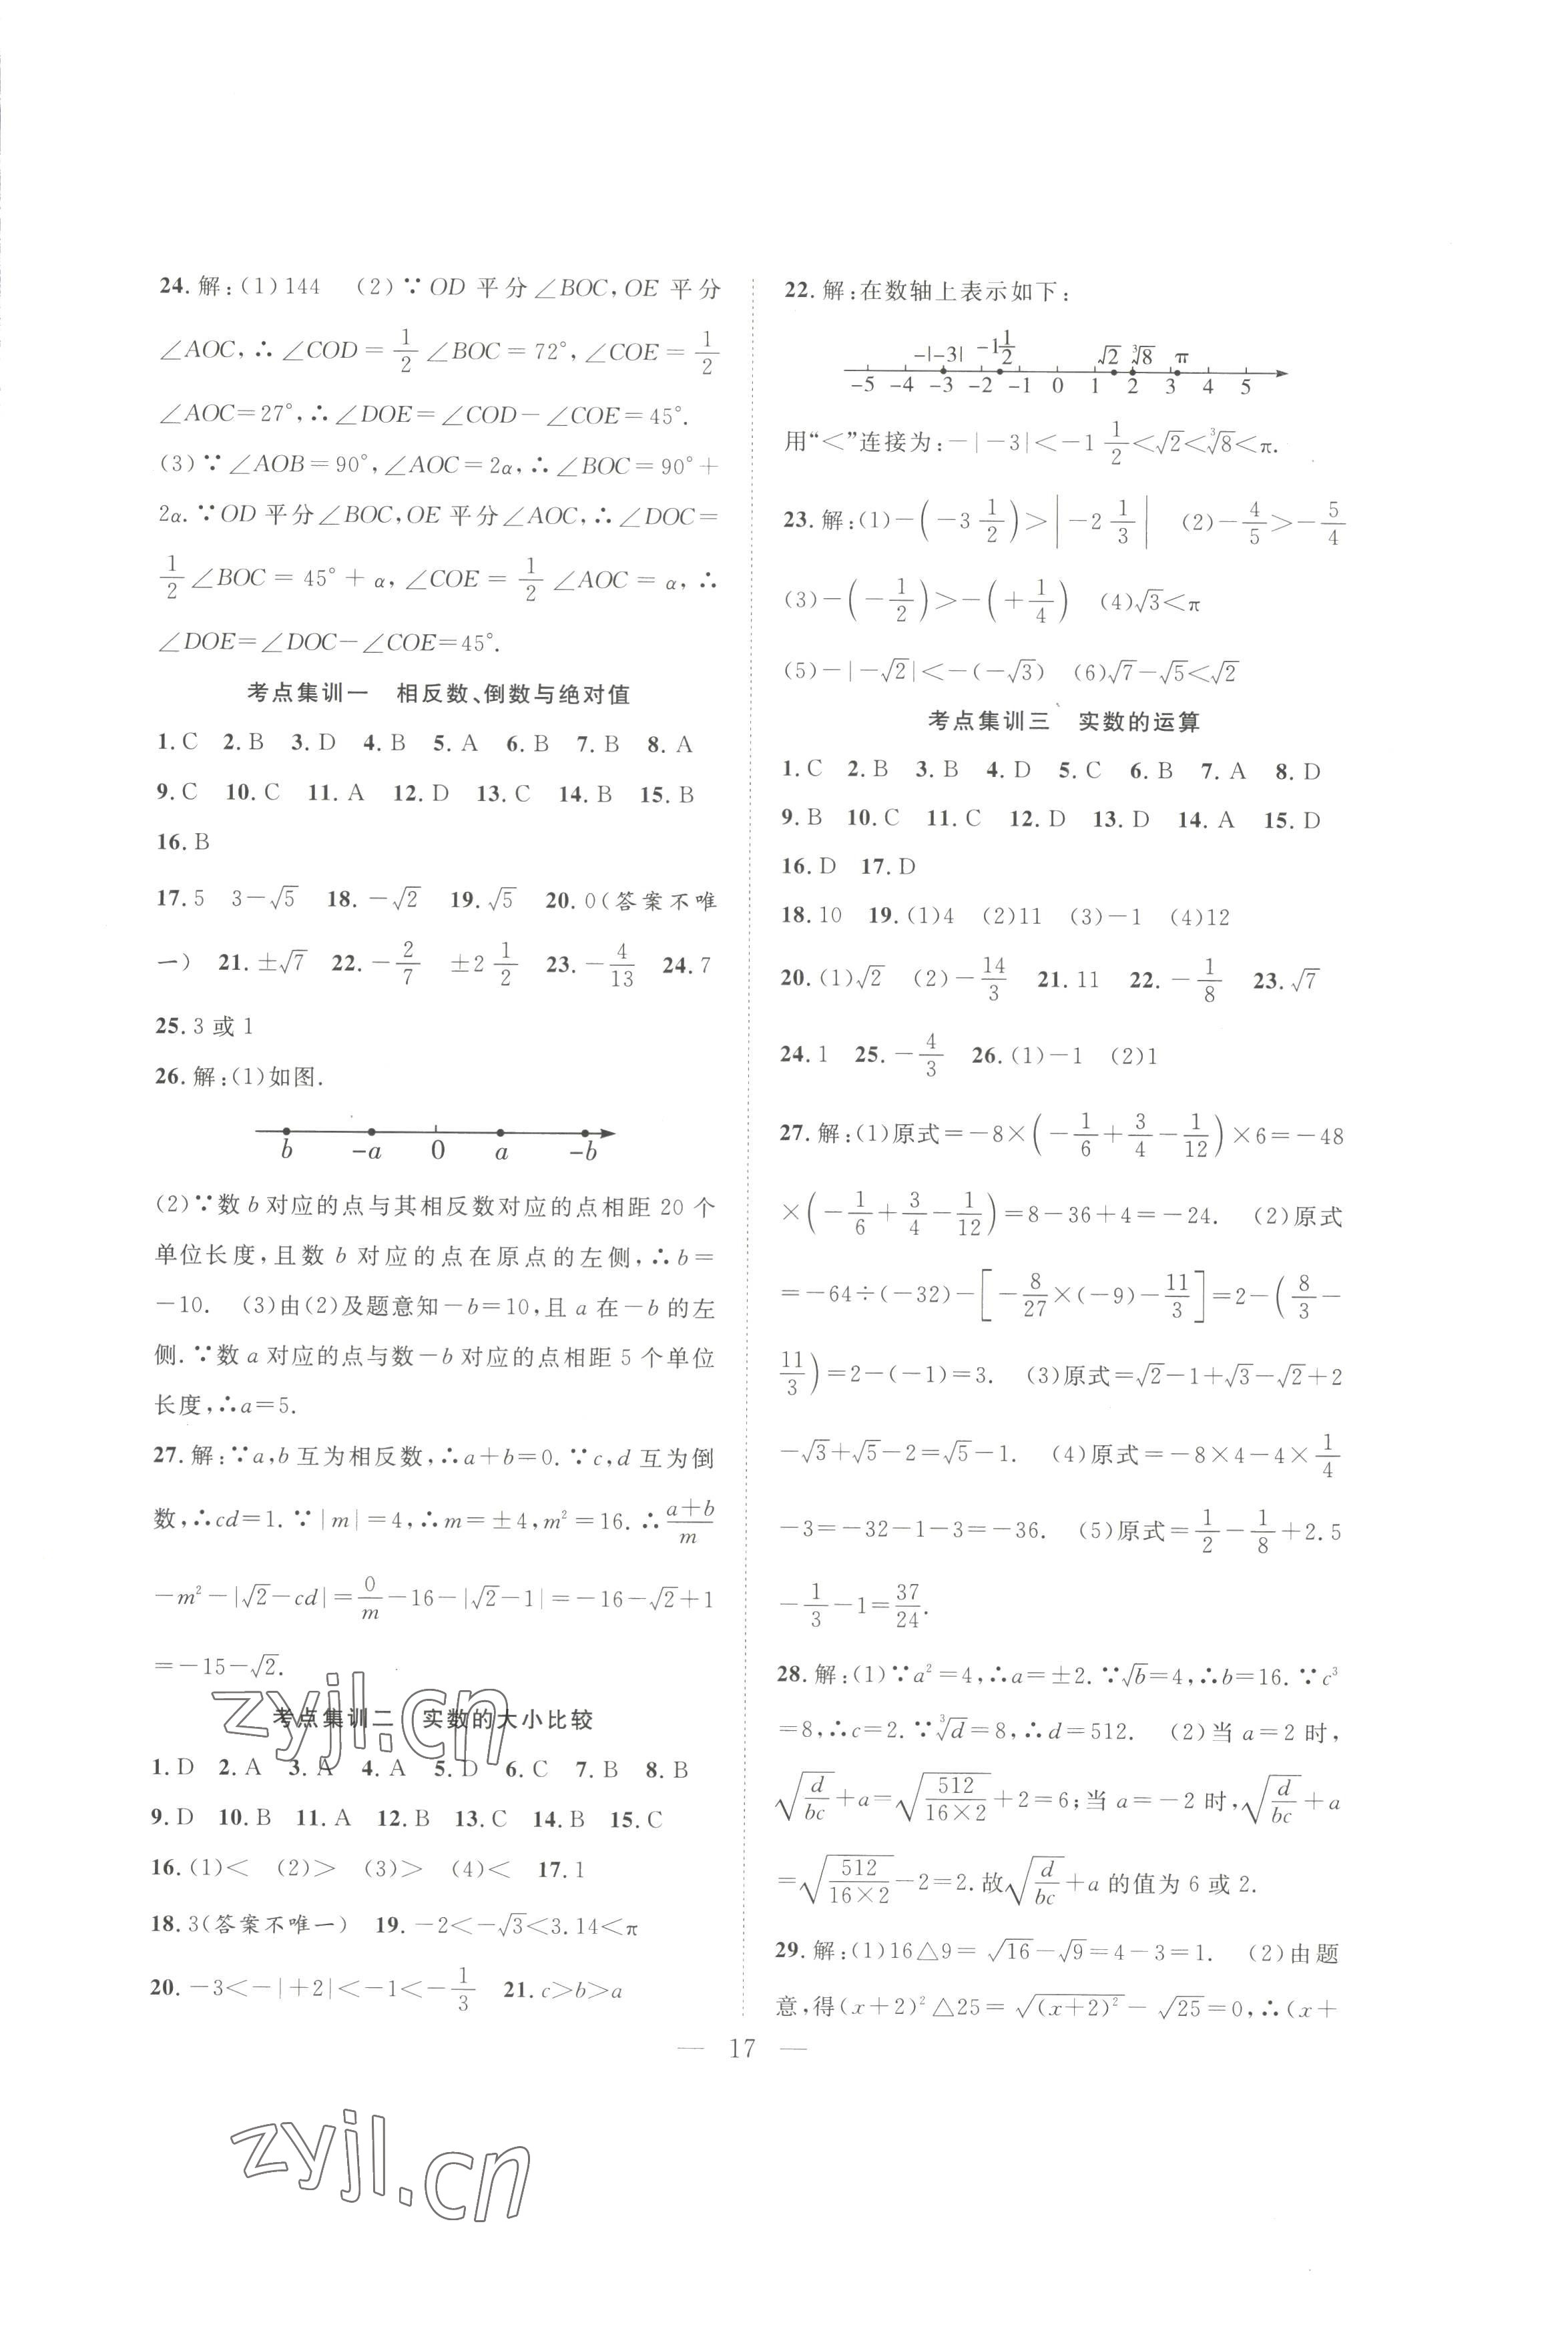 24.解:(1)144 (2)∵OD 平分∠BOC,OE 平分
∠AOC,∴∠COD=1/2∠BOC=72°,∠COE=1/2
∠AOC=27°,∴∠DOE=∠COD-∠COE=45°.
(3)∵∠AOB=90°,∠AOC=2α,∴∠BOC=90°+
2α.∵OD 平分∠BOC,OE 平分∠AOC,∴∠DOC=
1/2∠BOC=45°+α,∠COE=1/2∠AOC=α,∴
∠DOE=∠DOC-∠COE=45°.
考点集训一 相反数、倒数与绝对值
1.C 2.B 3.D 4.B 5.A 6.B 7.B 8.A
9.C 10.C 11.A 12.D 13.C 14.B 15.B
16.B
17.5 3-√5 18.-√2 19.√5 20.0(答案不唯
一) 21.±√7 22.-2/7 ±2 1/2 23.-4/13 24.7
25.3 或 1
26.解:(1)如图.
b -a 0 a -b
(2)∵数 b 对应的点与其相反数对应的点相距 20 个
单位长度,且数 b 对应的点在原点的左侧,∴b=
-10. (3)由(2)及题意知-b=10,且 a 在-b 的左
侧.∵数 a 对应的点与数-b 对应的点相距 5 个单位
长度,∴a=5.
27.解:∵a,b 互为相反数,∴a+b=0.∵c,d 互为倒
数,∴cd=1.∵|m|=4,∴m=±4,m²=16.∴(a+b)/m
-m²-|√2-cd|=0/m-16-|√2-1|=-16-√2+1
=-15-√2.
考点集训二 实数的大小比较
1.D 2.A 3.A 4.A 5.D 6.C 7.B 8.B
9.D 10.B 11.A 12.B 13.C 14.B 15.C
16.(1)< (2)> (3)> (4)< 17.1
18.3(答案不唯一) 19.-2<-√3<3.14<π
20.-3<-|+2|<-1<-1/3 21.c>b>a
22.解:在数轴上表示如下:
-|-3| -1 1/2 √2 ³√8 π
-5 -4 -3 -2 -1 0 1 2 3 4 5
用“<”连接为:-|-3|<-1 1/2<√2<³√8<π.
23.解:(1)-(-3 1/2)>|-2 1/3| (2)-4/5>-5/4
(3)-(-1/2)>-(+1/4) (4)√3<π
(5)-|-√2|<-(-√3) (6)√7-√5<√2
考点集训三 实数的运算
1.C 2.B 3.B 4.D 5.C 6.B 7.A 8.D
9.B 10.C 11.C 12.D 13.D 14.A 15.D
16.D 17.D
18.10 19.(1)4 (2)11 (3)-1 (4)12
20.(1)√2 (2)-14/3 21.11 22.-1/8 23.√7
24.1 25.-4/3 26.(1)-1 (2)1
27.解:(1)原式=-8×(-1/6+3/4-1/12)×6=-48
×(-1/6+3/4-1/12)=8-36+4=-24. (2)原式
=-64÷(-32)-[-8/27×(-9)-11/3]=2-(8/3-
11/3)=2-(-1)=3. (3)原式=√2-1+√3-√2+2
-√3+√5-2=√5-1. (4)原式=-8×4-4×1/4
-3=-32-1-3=-36. (5)原式=1/2-1/8+2.5
-1/3-1=37/24.
28.解:(1)∵a²=4,∴a=±2.∵√b=4,∴b=16.∵c³
=8,∴c=2.∵³√d=8,∴d=512. (2)当 a=2 时,
√(d/bc)+a=√(512/(16×2))+2=6;当 a=-2 时,√(d/bc)+a
=√(512/(16×2))-2=2.故√(d/bc)+a 的值为 6 或 2.
29.解:(1)16△9=√16-√9=4-3=1. (2)由题
意,得(x+2)²△25=√((x+2)²)-√25=0,∴(x+
— 17 —
zyjl.cn
zyjl.cn